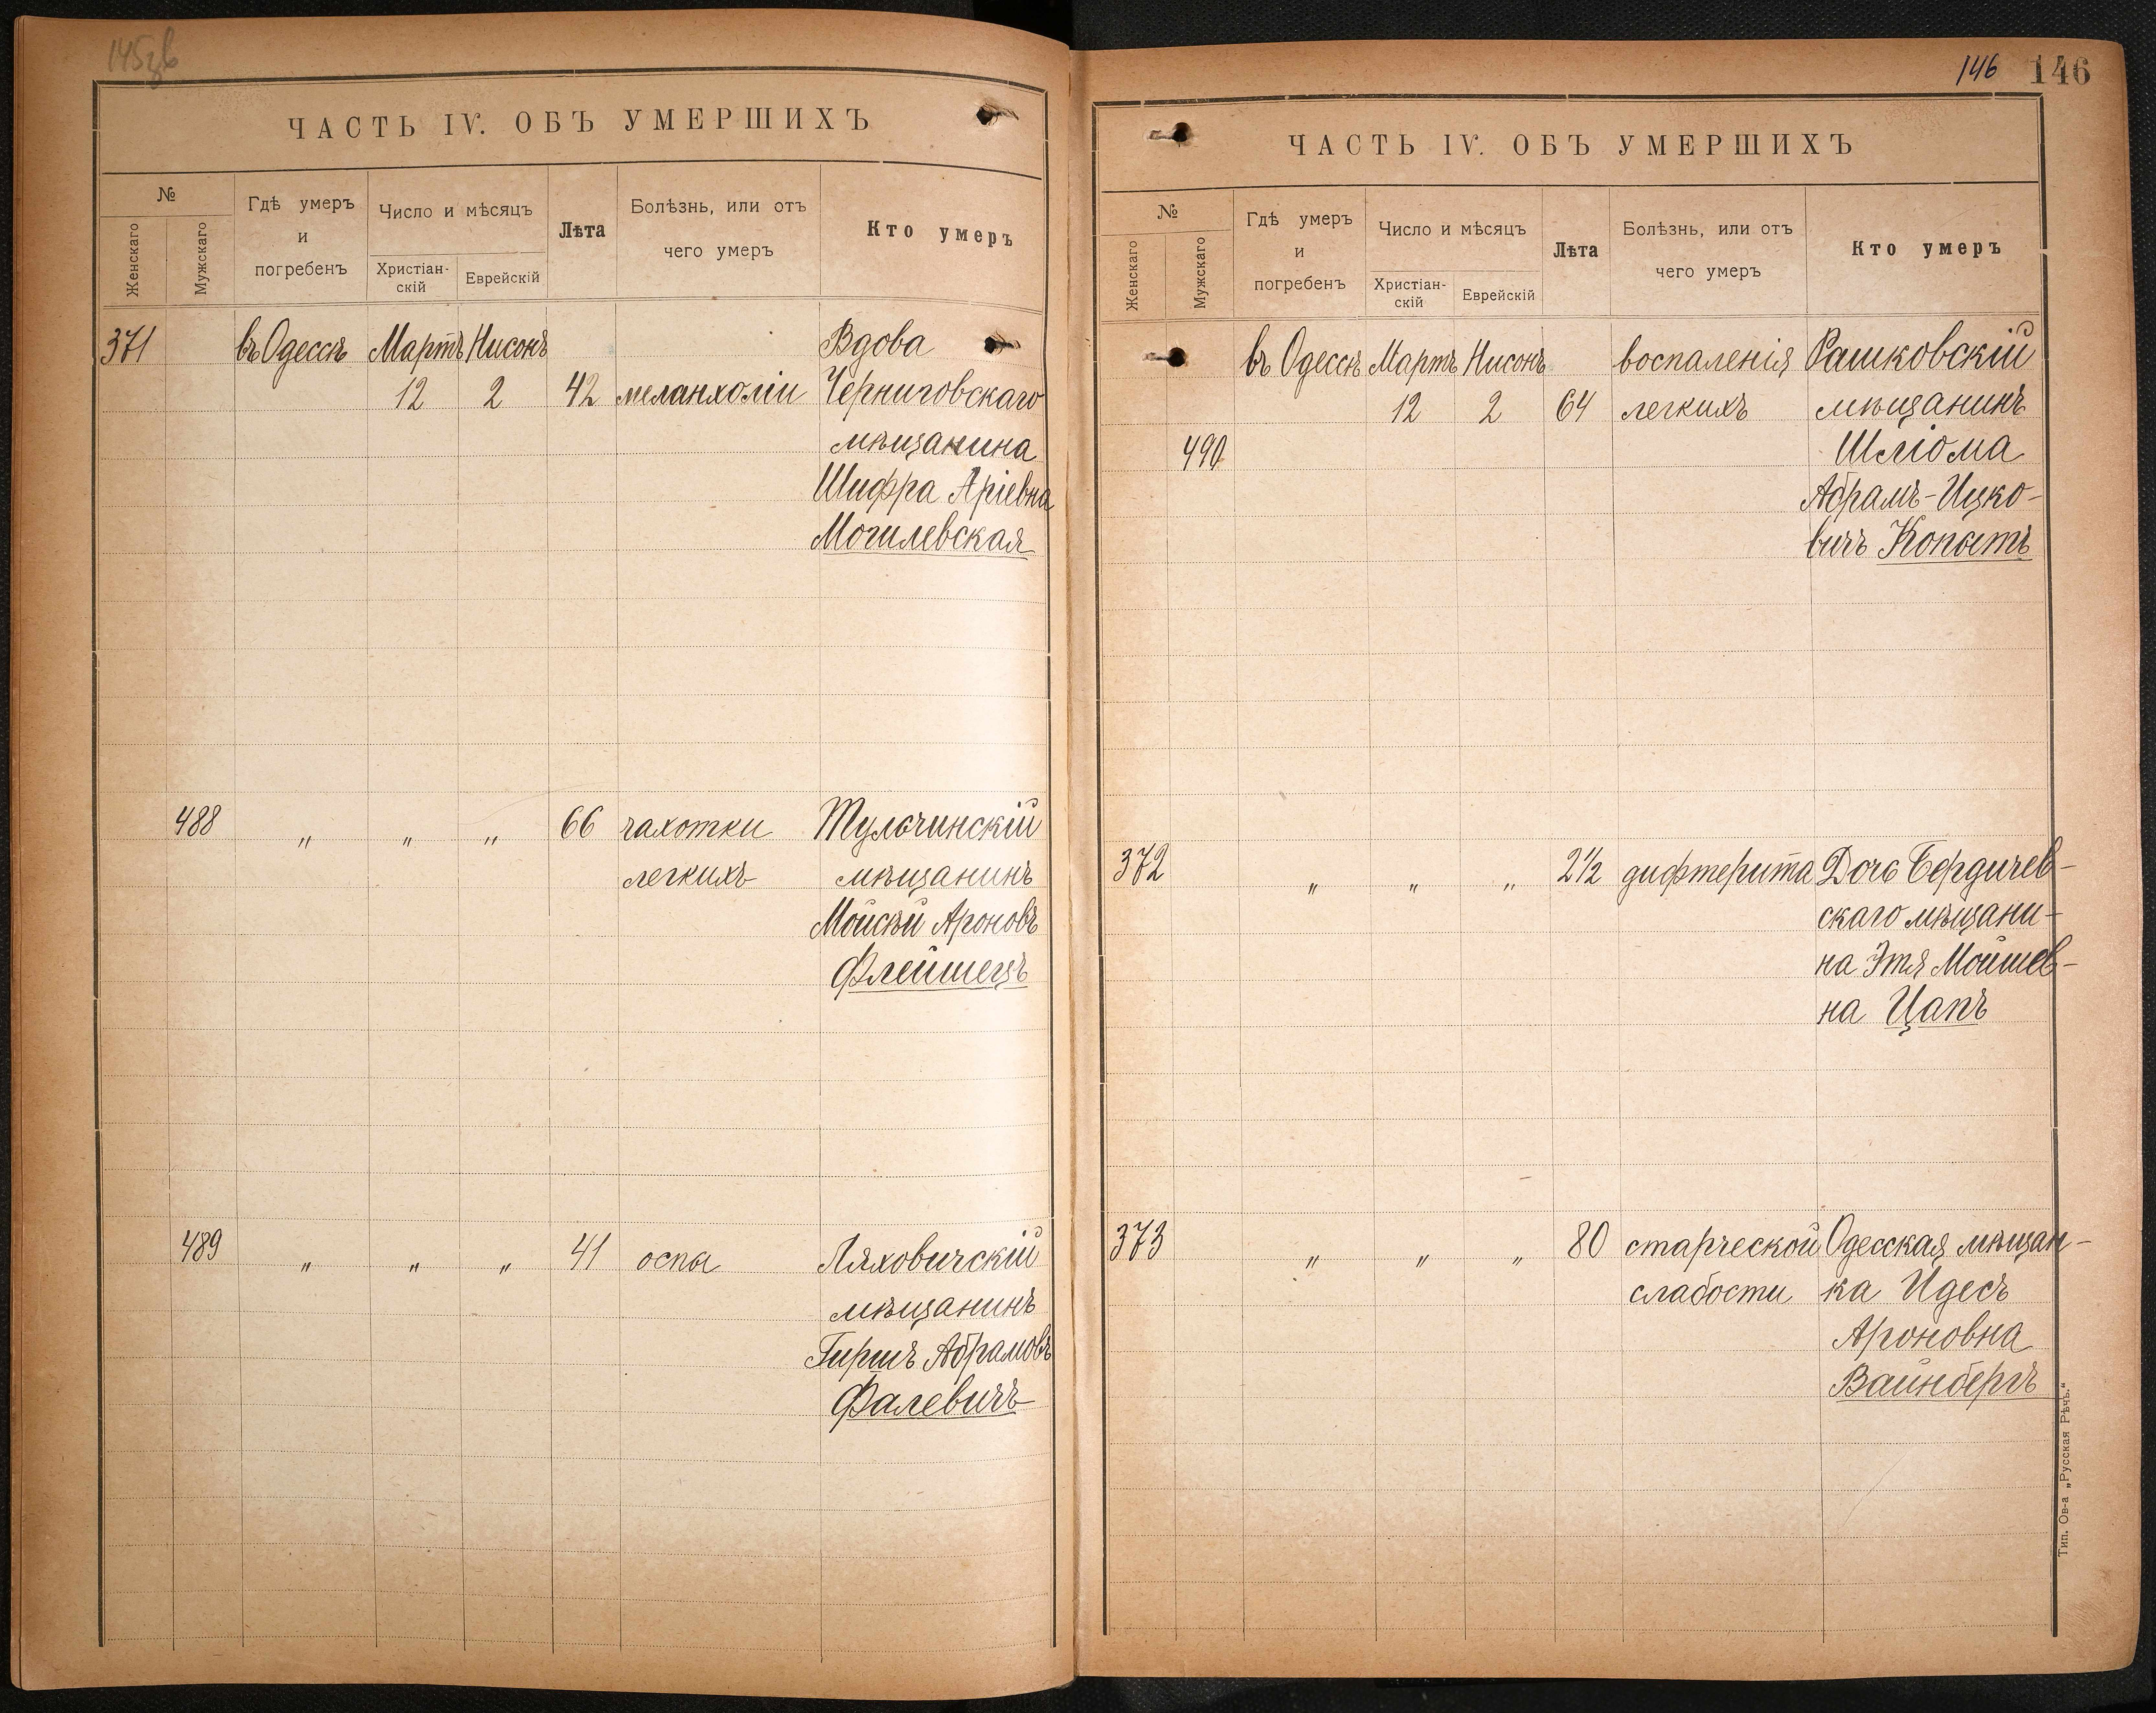 ЧАСТЬ IV. ОБЪ УМЕРШИХЪ
№
Женскаго
Мужскаго
Гдѣ умеръ
и
погребенъ
Число и мѣсяцъ
Христіан-
скій
Еврейскій
Лѣта
Болѣзнь, или отъ
чего умеръ
Кто умеръ
371 въ Одессѣ Мартъ Нисонъ Вдова
12 2 42 меланхоліи Черниговскаго
мѣщанина
Шифра Аріевна
Могилевская
488 " " " 66 чахотки Тульчинскій
легкихъ мѣщанинъ
Мойсѣй Ароновъ
Флейшецъ
489 " " " 41 оспы Ляховичскій
мѣщанинъ
Гиршъ Абрамовъ
Фалевичъ
146 146
ЧАСТЬ IV. ОБЪ УМЕРШИХЪ
№
Женскаго
Мужскаго
Гдѣ умеръ
и
погребенъ
Число и мѣсяцъ
Христіан-
скій
Еврейскій
Лѣта
Болѣзнь, или отъ
чего умеръ
Кто умеръ
въ Одессѣ Мартъ Нисонъ воспаленія Рашковскій
12 2 64 легкихъ мѣщанинъ
490 Шліома
Абрамъ-Ицко-
вичъ Копытъ
372 " " " 2½ дифтерита Дочь Бердичев-
скаго мѣщани-
на Этя Мойшев-
на Цапъ
373 " " " 80 старческой Одесская мѣщан-
слабости ка Идесъ
Ароновна
Вайнбергъ
Тип. Ов-а „Русская Рѣчь."